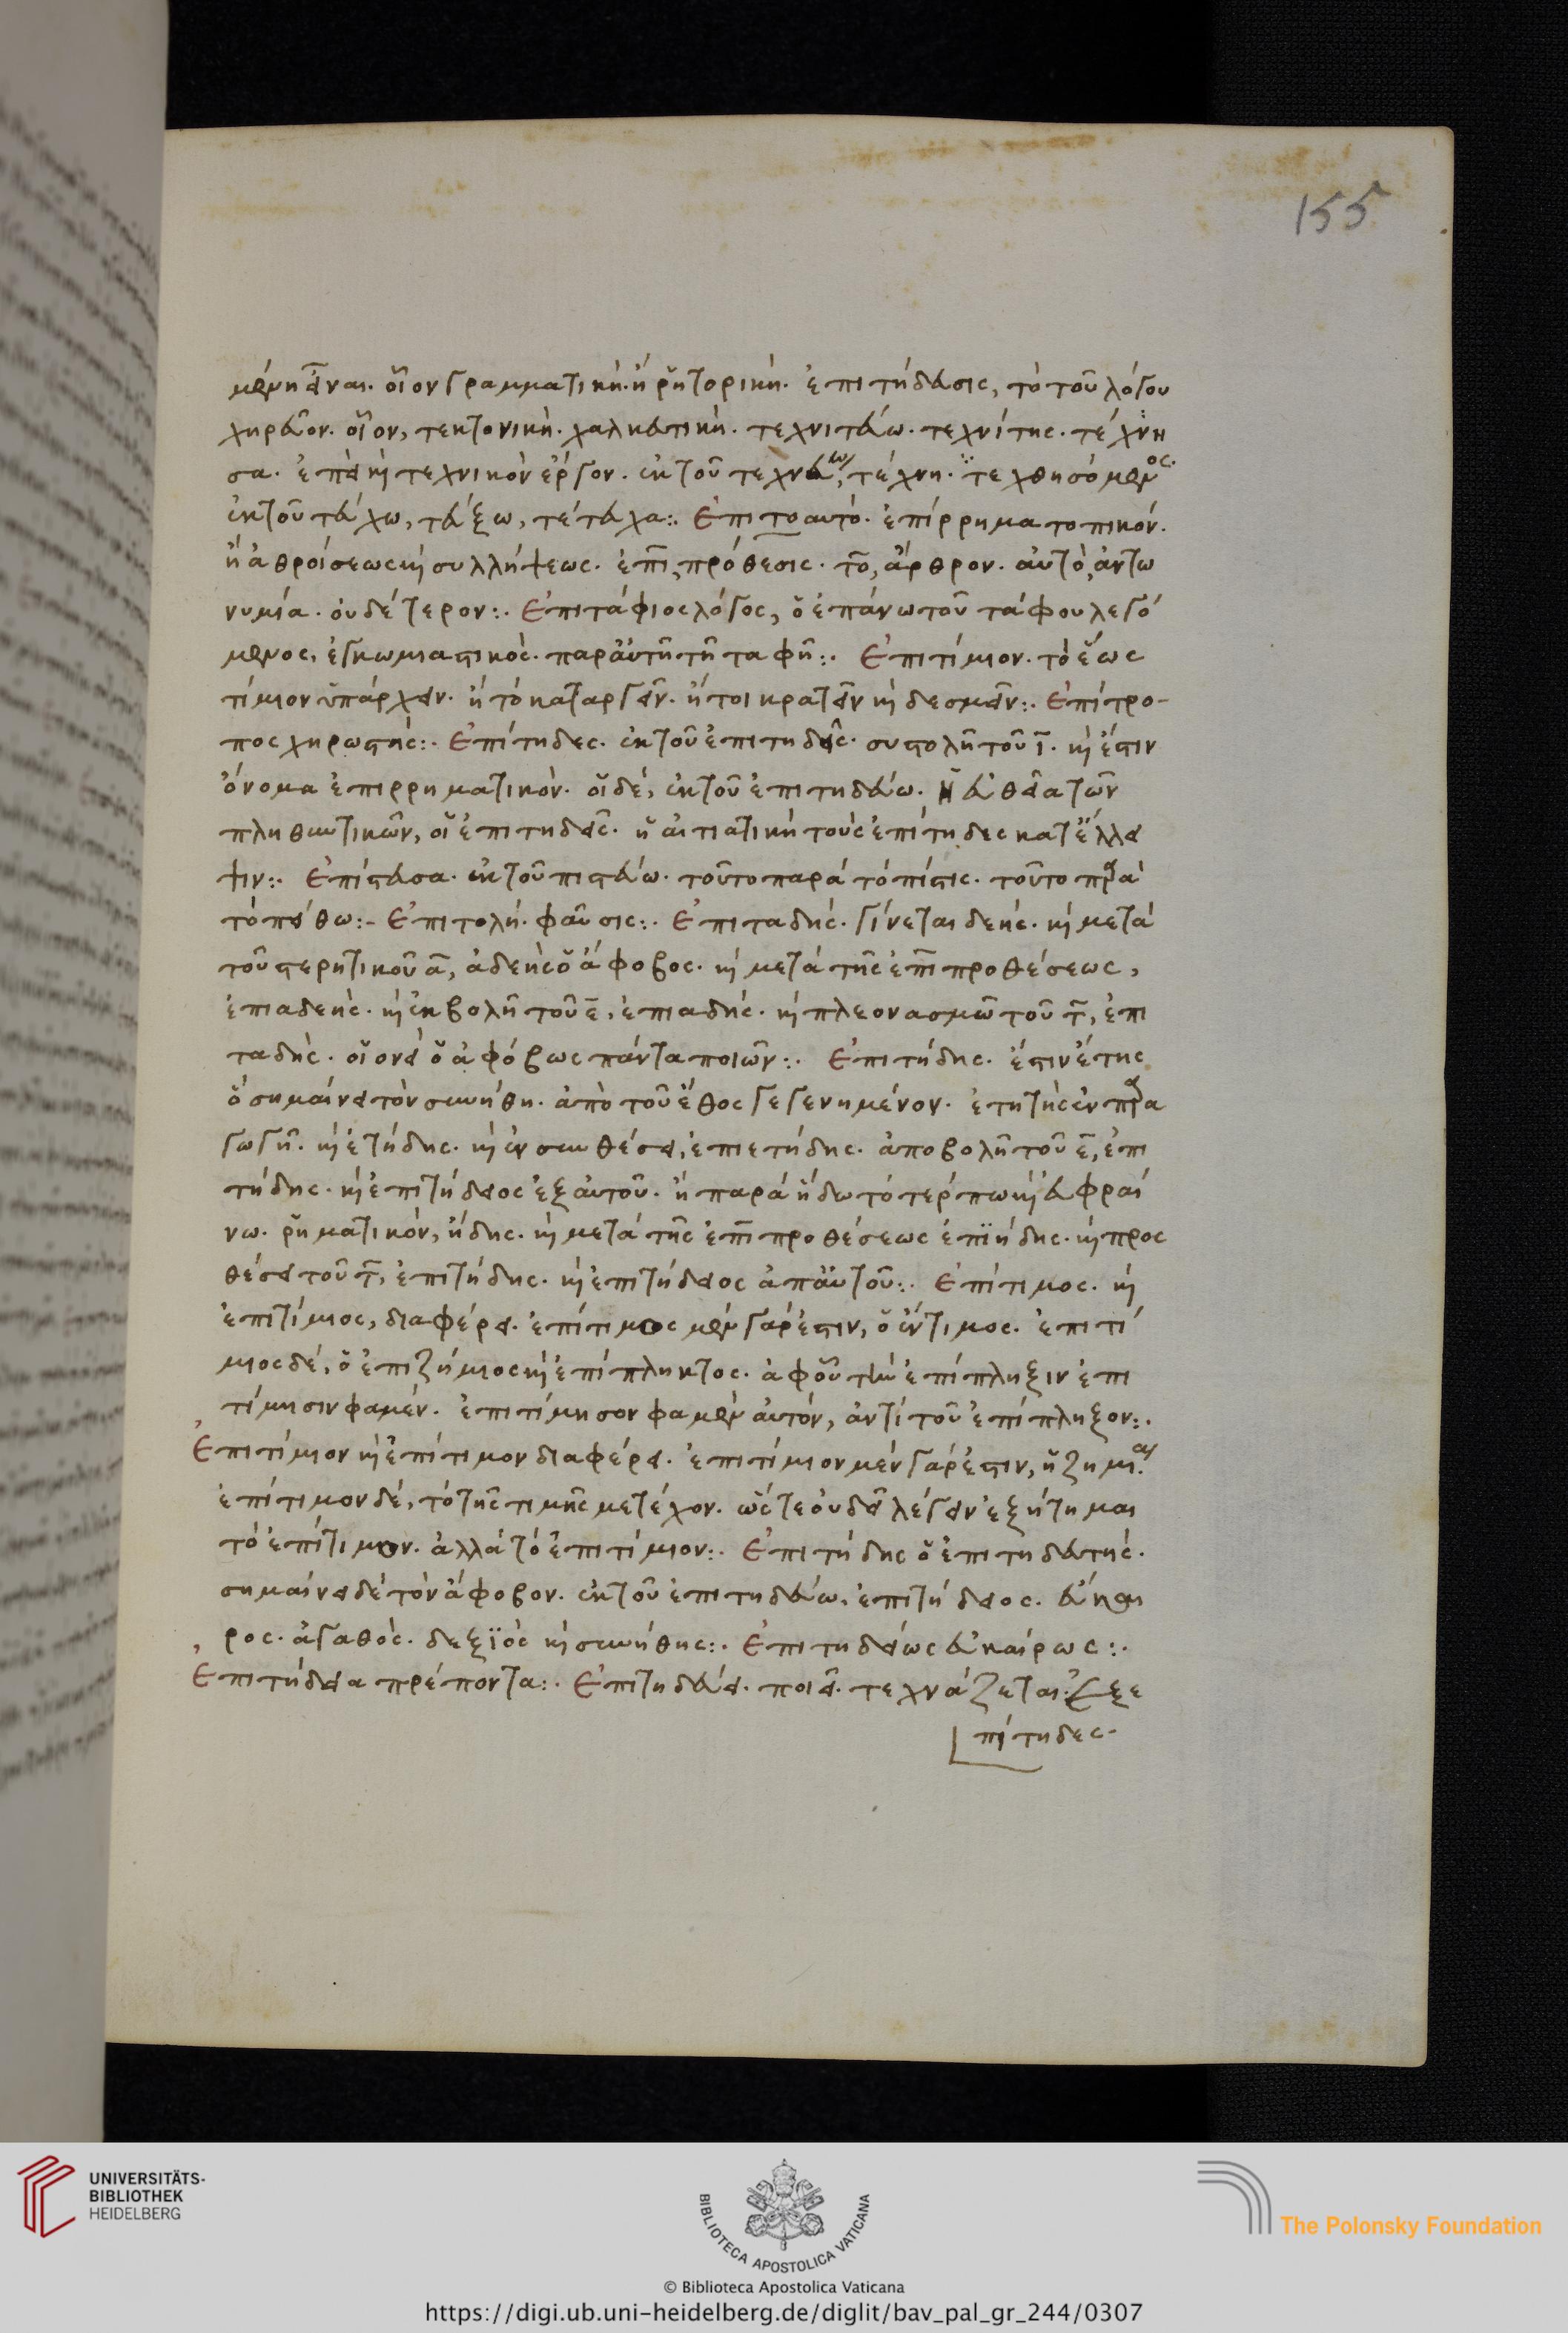 155
μένη εἶναι. οἷον γραμματικὴ. ἢ ῥητορική. ἐπιτήδευσις, τὸ τοῦ λόγου
χηρεῦον. οἷον, τεκτονικὴ. χαλκευτική. τεχνιτεύω. τεχνίτης. τέχνη
σα. ἐπὰ καὶ τεχνικὸν ἔργον. ἐκ τοῦ τεχνῶ, τέχνη. τεχθησόμενος.
ἐκ τοῦ τεύχω, τεύξω, τέτευχα:. Ἐπιτοαυτό. ἐπίρρημα τοπικόν.
ἢ ἀθροίσεως καὶ συλλήψεως. ἐπῑ, πρόθεσις. το̄, ἄρθρον. αὐτὸ, ἀντω
νυμία. οὐδέτερον:. Ἐπιτάφιος λόγος, ὁ ἐπάνω τοῦ τάφου λεγό
μενος, ἐγκωμιαστικὸς. παρ' αὐτῇ τῇ ταφῇ:. Ἐπιτίμιον. τὸ ἕως
τίμιον ὑπάρχειν. ἢ τὸ καταργεῖν. ἤτοι κρατεῖν καὶ δεσμεῖν:. Ἐπίτρο-
πος χηρωστής:. Ἐπίτηδες. ἐκ τοῦ ἐπιτηδεῖς. συστολῇ τοῦ ῑ. καὶ ἔστιν
ὄνομα ἐπιρρηματικὸν. οἱ δέ, ἐκ τοῦ ἐπιτηδεύω. ἢ εὐθεῖα τῶν
πληθυντικῶν, οἱ ἐπιτηδεῖς. ἡ αἰτιατικὴ τοὺς ἐπίτηδες κατ' ἔλλει
ψιν:. Ἐπίστευσα. ἐκ τοῦ πιστεύω. τοῦτο παρὰ τὸ πίστις. τοῦτο παρὰ
τὸ πείθω:- Ἐπιτολή. φαῦσις:. Ἐπιταδής. γίνεται δεής. καὶ μετὰ
τοῦ στερητικοῦ ᾱ, ἀδεὴς ὁ ἄφοβος. καὶ μετὰ τῆς ἐπῑ προθέσεως,
ἐπιαδεής. καὶ ἐκβολῇ τοῦ ε̄, ἐπιαδής. καὶ πλεονασμῷ τοῦ τ̄, ἐπι
ταδής. οἱονεὶ ὁ ἀφόβως πάντα ποιῶν:. Ἐπιτήδης. ἔστιν ἔτης
ὃ σημαίνει τὸν συνήθη. ἀπὸ τοῦ ἔθος γεγενημένον. ἐτητὴς ἐν παρα
γωγῇ. καὶ ἐτήδης. καὶ ἐν συνθέσει, ἐπιετήδης. ἀποβολῇ τοῦ ε̄, ἐπι
τήδης. καὶ ἐπιτήδειος ἐξ αὐτοῦ. ἢ παρὰ ἥδω τὸ τέρπω καὶ εὐφραί
νω. ῥηματικὸν, ἥδης. καὶ μετὰ τῆς ἐπῑ προθέσεως ἐπϊήδης. καὶ προσ
θέσει τοῦ τ̄, ἐπιτήδης. καὶ ἐπιτήδειος ἀπ' αὐτοῦ:. Ἐπίτιμος. καὶ
ἐπιτίμιος, διαφέρει. ἐπίτιμος μὲν γάρ ἐστιν, ὁ ἔντιμος. ἐπιτί
μιος δέ, ὁ ἐπιζήμιος καὶ ἐπίπληκτος. ἀφ' οὗ τὴν ἐπίπληξιν ἐπι
τίμησιν φαμέν. ἐπιτίμησον φαμὲν αὐτόν, ἀντὶ τοῦ ἐπίπληξον:.
Ἐπιτίμιον καὶ ἐπίτιμον διαφέρει. ἐπιτίμιον μέν γάρ ἐστιν, ἡ ζημία.
ἐπίτιμον δέ, τὸ τῆς τιμῆς μετέχον. ὥστε οὐ δεῖ λέγειν ἐξήτημαι
τὸ ἐπίτιμον. ἀλλὰ τὸ ἐπιτίμιον:. Ἐπιτήδης ὁ ἐπιτηδευτής.
σημαίνει δὲ τὸν ἄφοβον. ἐκ τοῦ ἐπιτηδεύω. ἐπιτήδειος. εὔκαι
ρος. ἀγαθὸς. δεξϊὸς καὶ συνήθης:. Ἐπιτηδείως εὐκαίρως:.
Ἐπιτήδεια πρέποντα:. Ἐπιτηδεύει. ποιεῖ. τεχνάζεται. Ἐξε
πίτηδες.
UNIVERSITÄTS-
BIBLIOTHEK
HEIDELBERG
BIBLIOTECA APOSTOLICA VATICANA
The Polonsky Foundation
© Biblioteca Apostolica Vaticana
https://digi.ub.uni-heidelberg.de/diglit/bav_pal_gr_244/0307